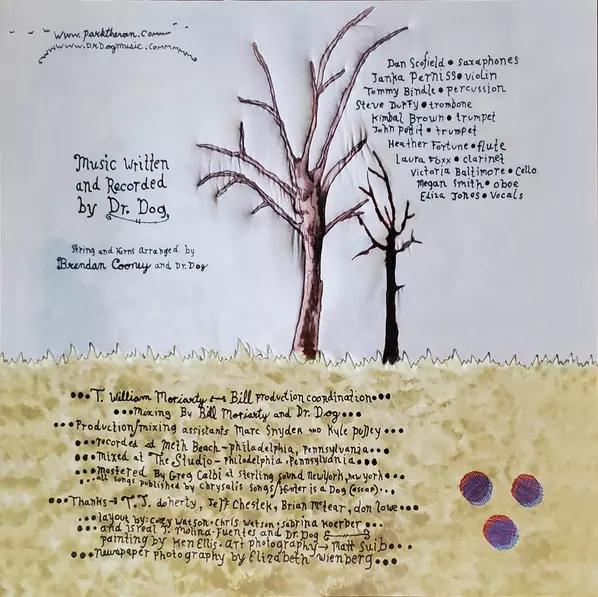 www.parktheran.com
www.DrDogmusic.com
Dan Scofield • saxaphones
Janka Perniss • violin
Tommy Bindle • percussion
Steve Duffy • trombone
Kimbal Brown • trumpet
John Pettit • trumpet
Heather Fortune • flute
Laura Foxx • clarinet
Victoria Baltimore • Cello
Megan Smith • oboe
Eliza Jones • Vocals
Music Written
and Recorded
by Dr. Dog
String and Horns arranged by
Brendan Cooney and Dr. Dog
•••T. William Moriarty ↔ Bill production coordination•••
•••Mixing By Bill Moriarty and Dr. Dog•••
•••Production/mixing assistants Marc Snyder and Kyle •••
•••recorded at Meth Beach-philadelphia, Pennsylvania•••
•••mixed at The Studio-Philadelphia, Pennsylvania•••
•••mastered By Greg Calbi at sterling sound New York, New York•••
••all songs published by Chrysalis songs/ is a Dog (ascap)••
•••Thanks→ T.J. doherty, Jeff Chestek, Brian McTear, don lowe•••
••layout by: Cozy Watson • Chris Watson • Sabrina Koerber•••
••and Isreal T. Molina-Fuentes and Dr. Dog
painting by Ken Ellis • Art photography→ Matt Suib••
•••newspaper photography by Elizabeth Wienberg•••